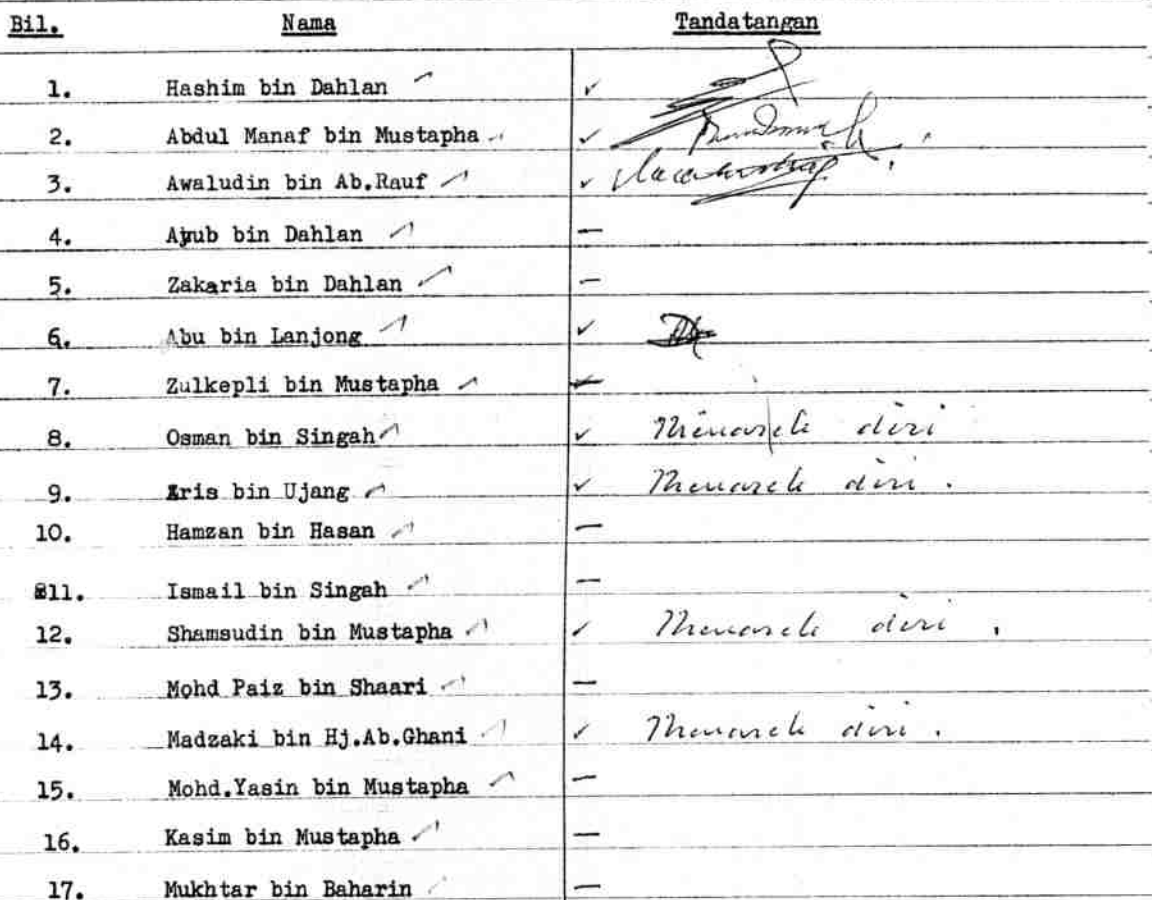 Bil. Nama Tandatangan
1. Hashim bin Dahlan ✓
2. Abdul Manaf bin Mustapha ✓
3. Awaludin bin Ab.Rauf ✓
4. Ayub bin Dahlan —
5. Zakaria bin Dahlan —
6. Abu bin Lanjong ✓
7. Zulkepli bin Mustapha —
8. Osman bin Singah ✓ Menarik diri
9. Aris bin Ujang ✓ Menarik diri.
10. Hamzan bin Hasan —
11. Ismail bin Singah —
12. Shamsudin bin Mustapha ✓ Menarik diri.
13. Mohd Paiz bin Shaari —
14. Madzaki bin Hj.Ab.Ghani ✓ Menarik diri.
15. Mohd.Yasin bin Mustapha —
16. Kasim bin Mustapha —
17. Mukhtar bin Baharin —